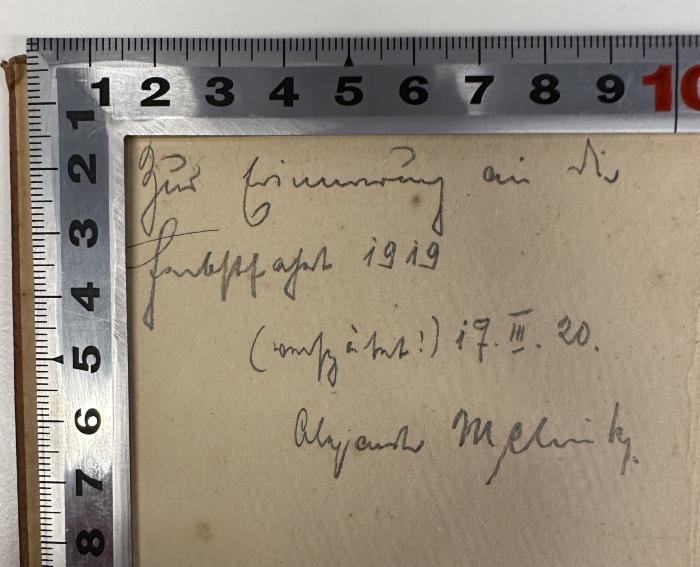 1 2 3 4 5 6 7 8 9 10
1
2
3
4
5
6
7
8
Zur Erinnerung an die
Herbstfahrt 1919
(verspätet!) 17. III. 20.